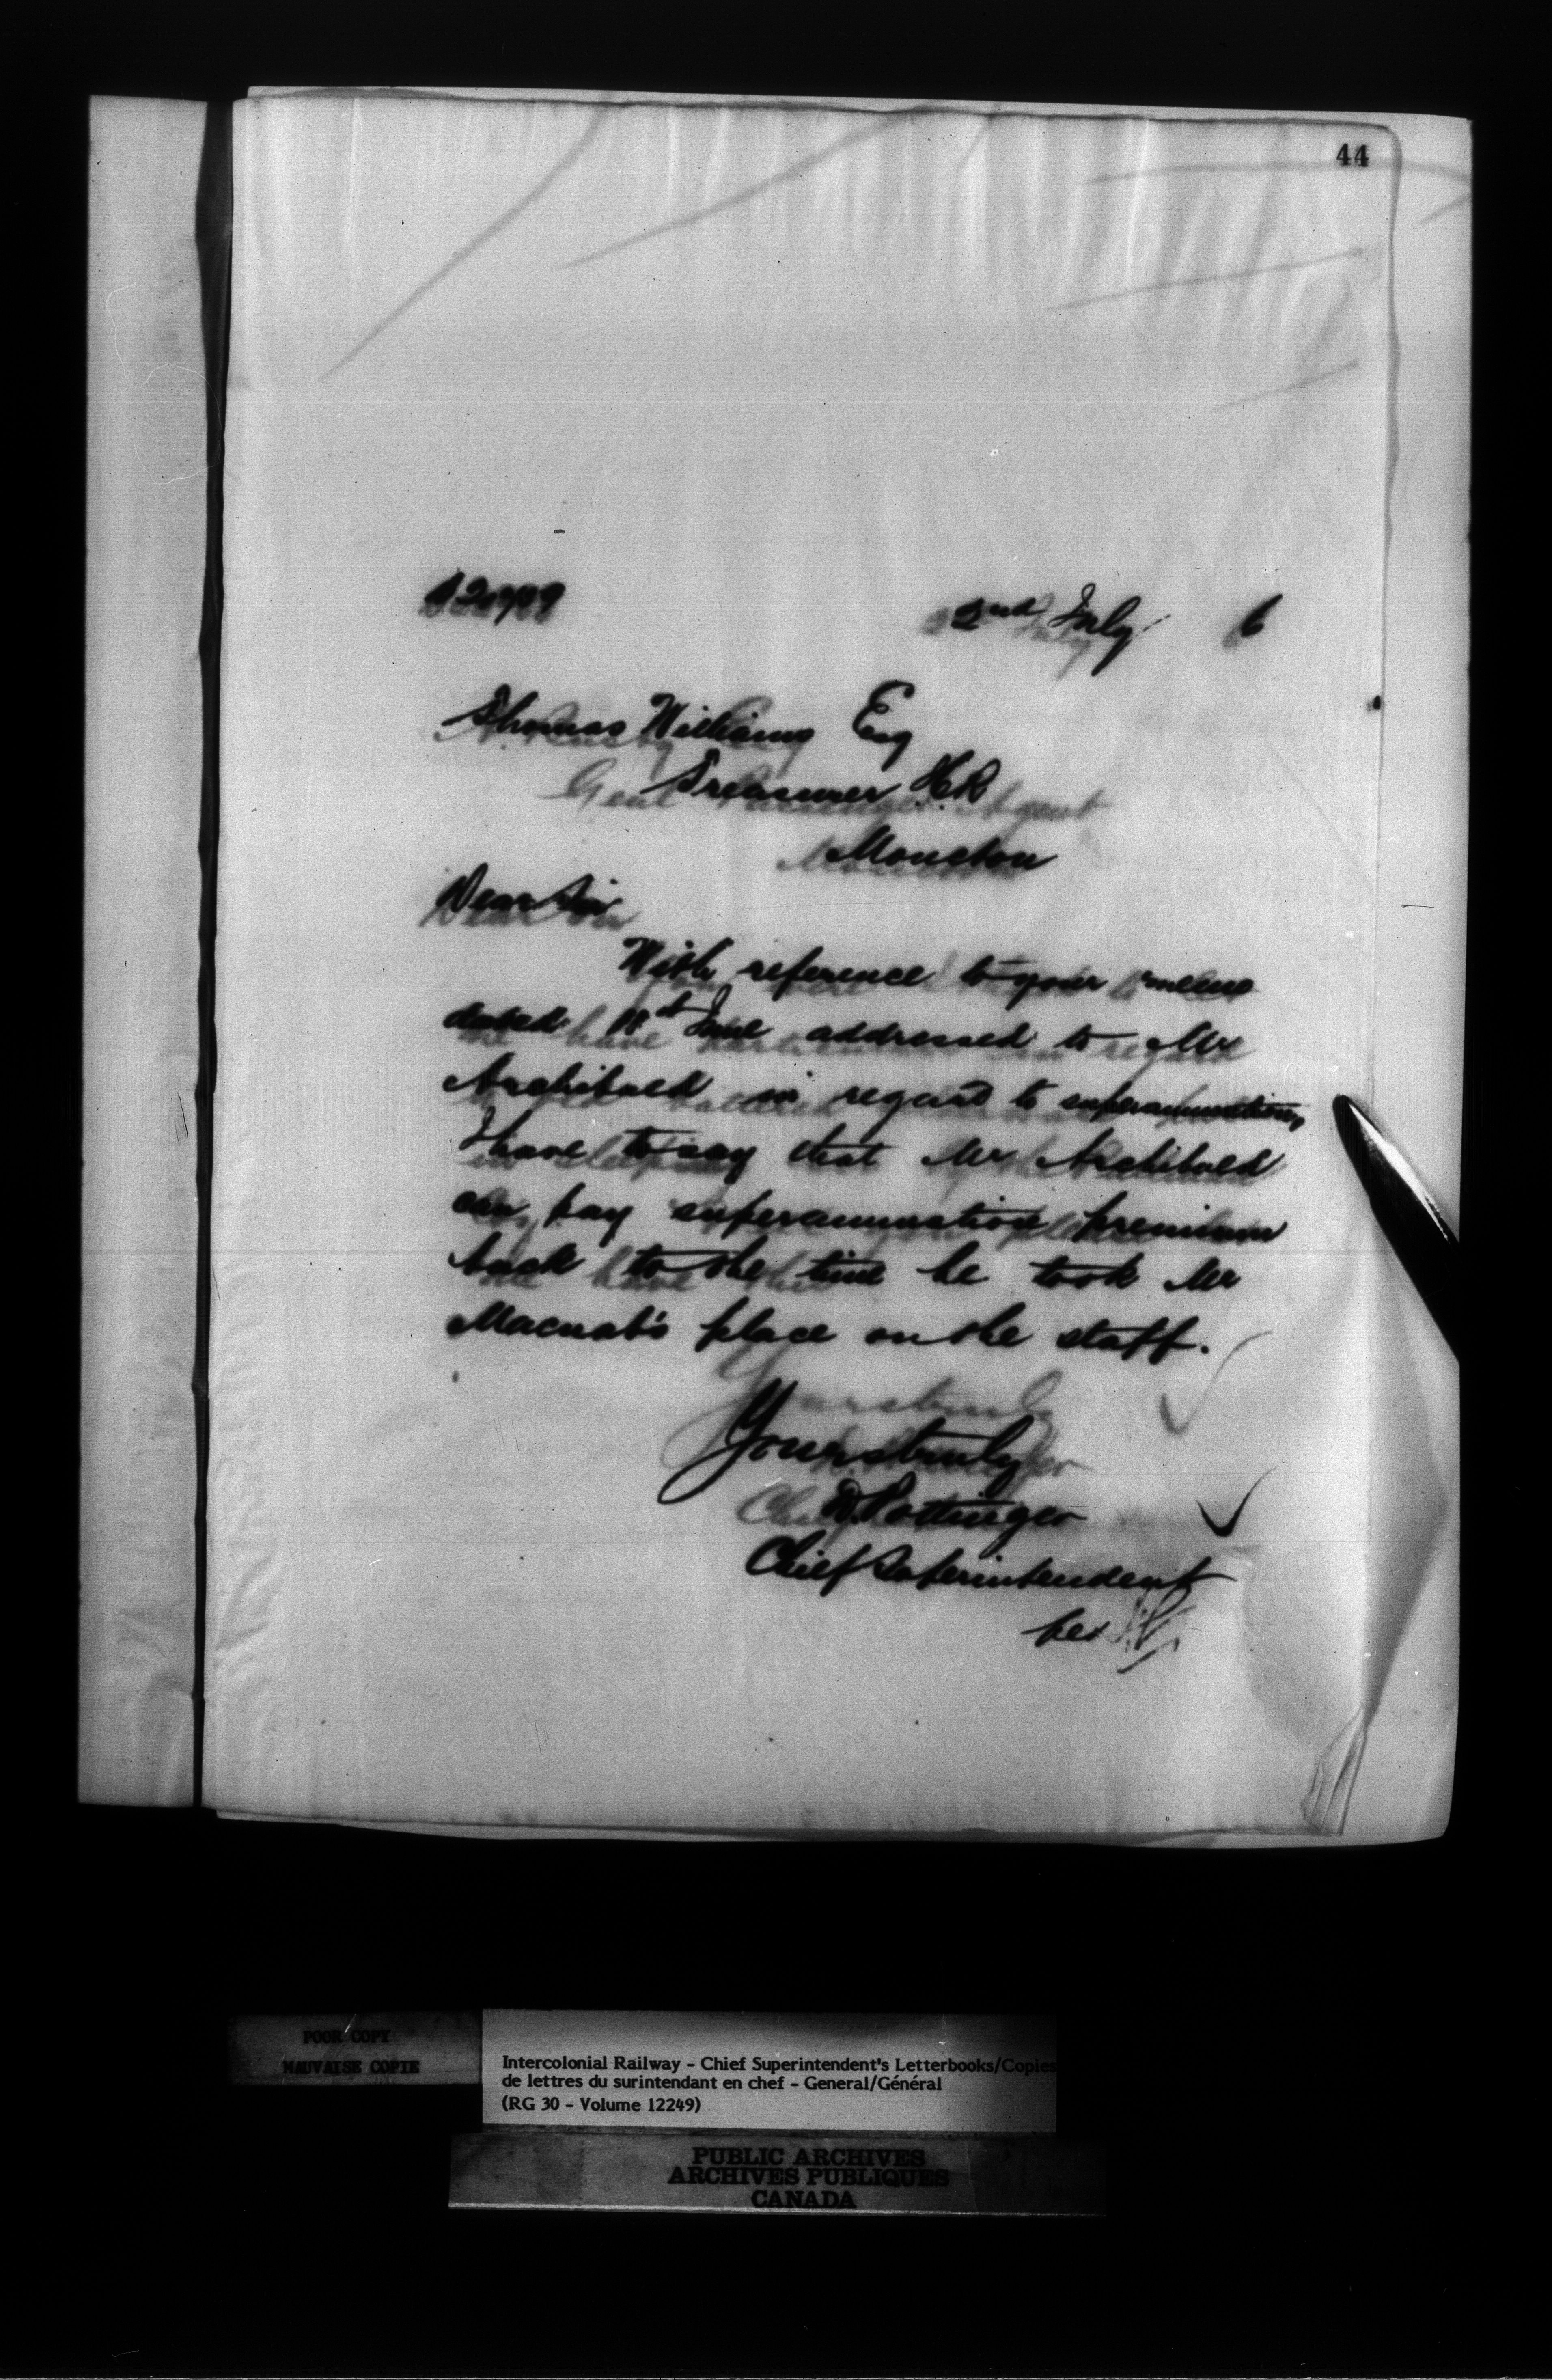 44
2nd July 6
Thomas Williams Esq
Treasurer I.C.R
Moncton
Dear Sir
With reference to your memo
dated June addressed to Mr
Archibald in regard to superannuation,
I have to say that Mr Archibald
can pay superannuation premium
back to the time he took Mr
Macnab's place on the staff.
Yours truly
D. Pottinger
Chief Superintendent
per
POOR COPY
MAUVAISE COPIE
Intercolonial Railway - Chief Superintendent's Letterbooks/Copies
de lettres du surintendant en chef - General/Général
(RG 30 - Volume 12249)
PUBLIC ARCHIVES
ARCHIVES PUBLIQUES
CANADA